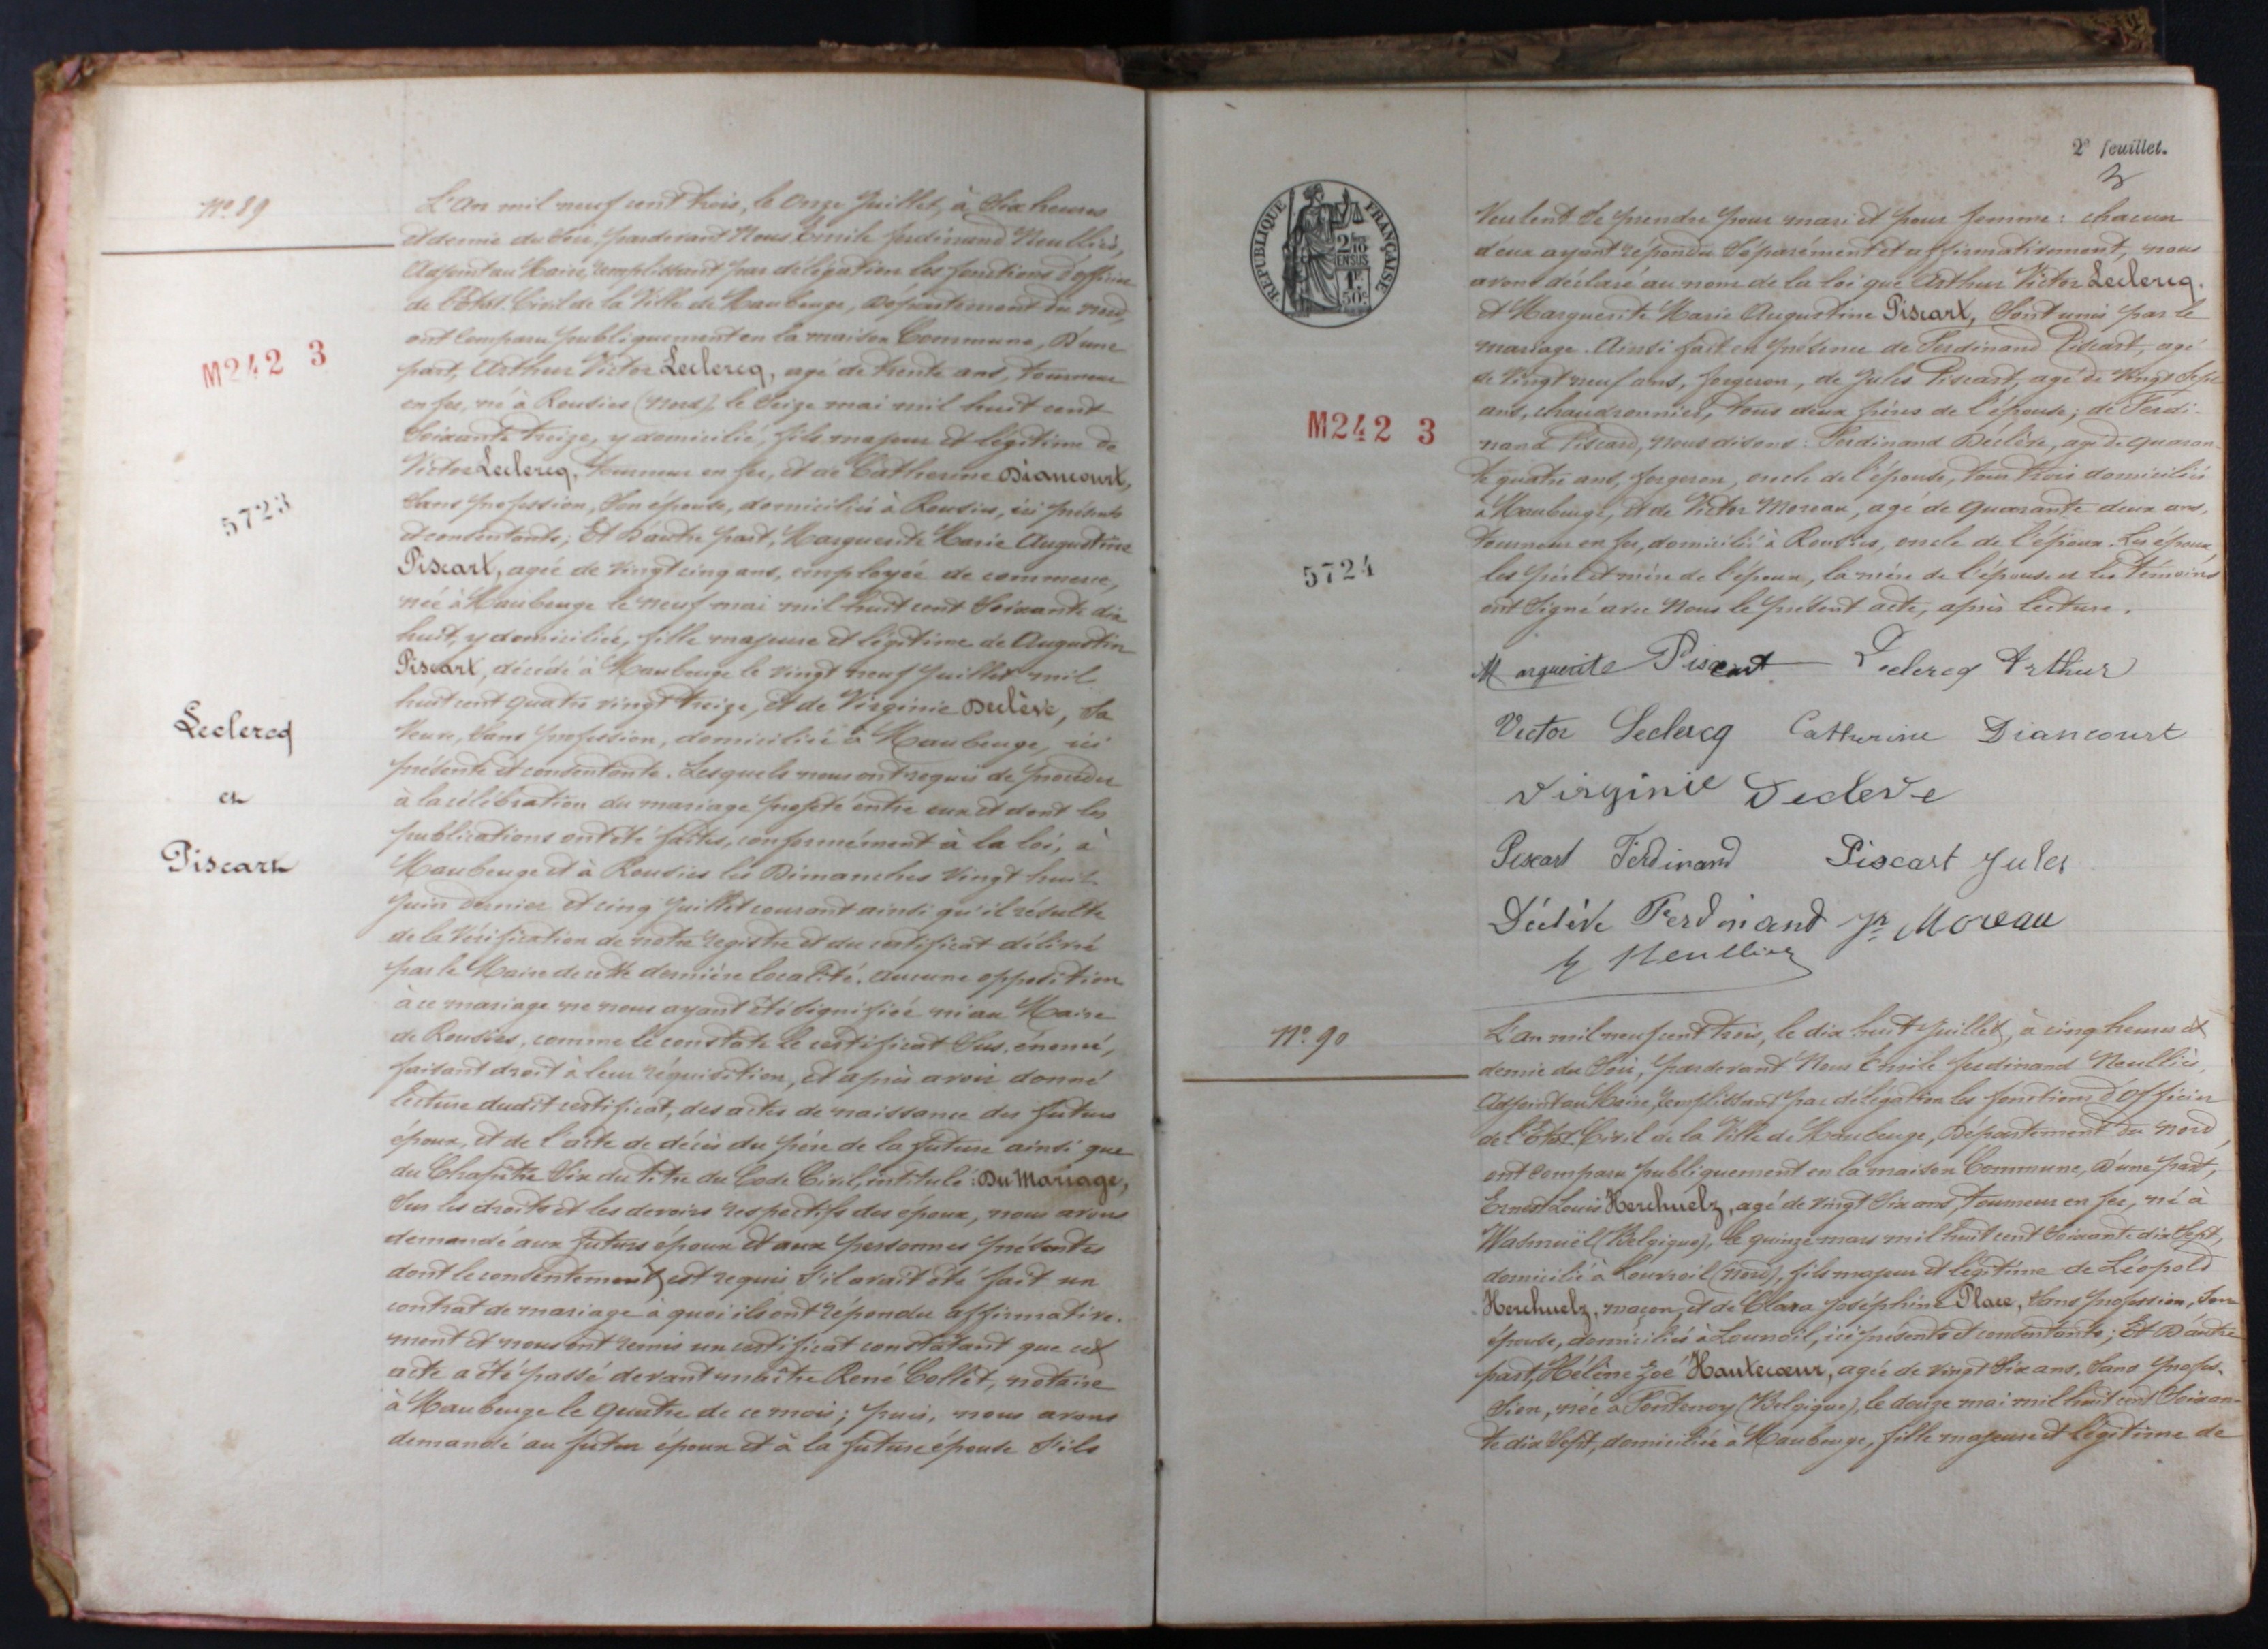 Nº 89
M242 3
5723
Leclercq
et
Piscart
L'An mil neuf cent trois, le Onze Juillet, à Six heures
et demie du Soir, pardevant Nous Emile ferdinand Neulliès,
Adjoint au Maire, remplissant par délégation les fonctions d'officier
de l'Etat-Civil de la Ville de Maubeuge, Département du nord,
ont Comparu publiquement en la maison Commune, D'une
part, Arthur Victor Leclercq, agé de trente ans, tourneur
en fer, né à Rousies (Nord), le Seize mai mil huit cent
Soixante treize, y domicilié, fils majeur et légitime de
Victor Leclercq, tourneur en fer, et de Catherine Diancourt,
Sans profession, Son épouse, domiciliés à Rousies, ici présents
et consentants; Et D'autre part, Marguerite Marie Augustine
Piscart, agée de Vingt cinq ans, employée de commerce,
née à Maubeuge le neuf mai mil huit cent Soixante dix
huit, y domiciliée, fille majeure et légitime de Augustin
Piscart, décédé à Maubeuge le vingt neuf Juillet mil
huit cent quatre vingt treize, et de Virginie Declève, Sa
Veuve, Sans profession, domiciliée à Maubeuge, ici
présente et consentante. Lesquels nous ont requis de procéder
à la célébration du mariage projeté entre eux et dont les
publications ont été faites, conformément à la loi, à
Maubeuge et à Rousies les Dimanches Vingt huit
Juin dernier et cinq Juillet courant ainsi qu'il résulte
de la Vérification de notre registre et du certificat délivré
par le Maire de cette dernière localité. Aucune opposition
à ce mariage ne nous ayant été signifiée ni au Maire
de Rousies, comme le constate le certificat Sus-énoncé,
faisant droit à leur réquisition, et après avoir donné
lecture dudit certificat, des actes de naissance des futurs
époux, et de l'acte de décès du père de la future ainsi que
du Chapitre Six du titre du Code Civil, intitulé: Du Mariage,
Sur les droits et les devoirs respectifs des époux, nous avons
demandé aux futurs époux et aux personnes présentes
dont le consentement est requis S'il avait été fait un
contrat de mariage à quoi ils ont répondu affirmative-
ment et nous ont remis un certificat constatant que cet
acte a été passé devant maître René Collet, notaire
à Maubeuge le quatre de ce mois; puis, nous avons
demandé au futur époux et à la future épouse S'ils
2e feuillet.
3
REPUBLIQUE FRANÇAISE
2/10 EN SUS
1F 50c
M242 3
5724
Veulent Se prendre pour mari et pour femme: chacun
d'eux ayant répondu Séparément et affirmativement, nous
avons déclaré au nom de la loi que Arthur Victor Leclercq.
et Marguerite Marie Augustine Piscart, Sont unis par le
mariage. Ainsi fait en présence de Ferdinand Piscart, agé
de Vingt neuf ans, forgeron, de Jules Piscart, agé de Vingt Sept
ans, chaudronnier, tous deux frères de l'épouse; de Ferdi-
nand Piscard, Nous disons: Ferdinand Déclève, agé de quaran-
te quatre ans, forgeron, oncle de l'épouse, tous trois domiciliés
à Maubeuge, et de Victor Moreau, agé de quarante deux ans,
tourneur en fer, domicilié à Rousies, oncle de l'époux. Les époux,
les père et mère de l'époux, la mère de l'épouse et les témoins
ont Signé avec Nous le présent acte, après lecture.
Marguerite Piscart Leclercq Arthur
Victor Leclercq Catherine Diancourt
Virginie Declève
Piscart Ferdinand Piscart Jules
Déclève Ferdinand Moreau
E Neulliès
Nº 90
L'An mil neuf cent trois, le dix huit Juillet, à cinq heures et
demie du Soir, pardevant Nous Emile ferdinand Neulliès,
Adjoint au Maire, remplissant par délégation les fonctions d'officier
de l'Etat-Civil de la Ville de Maubeuge, Département du Nord,
ont comparu publiquement en la maison Commune, D'une part,
Ernest Louis Herchuelz, agé de vingt Six ans, tourneur en fer, né à
Wasmuël (Belgique), le quinze mars mil huit cent Soixante dix Sept,
domicilié à Louvroil (Nord), fils majeur et légitime de Léopold
Herchuelz, maçon, et de Clara Joséphine Place, Sans profession, Son
épouse, domiciliés à Louvroil, ici présents et consentants; Et D'autre
part, Hélène Zoé Hautecoeur, agée de vingt Six ans, Sans profes-
sion, née à Fontenoy (Belgique), le douze mai mil huit cent Soixan-
te dix Sept, domiciliée à Maubeuge, fille majeure et légitime de